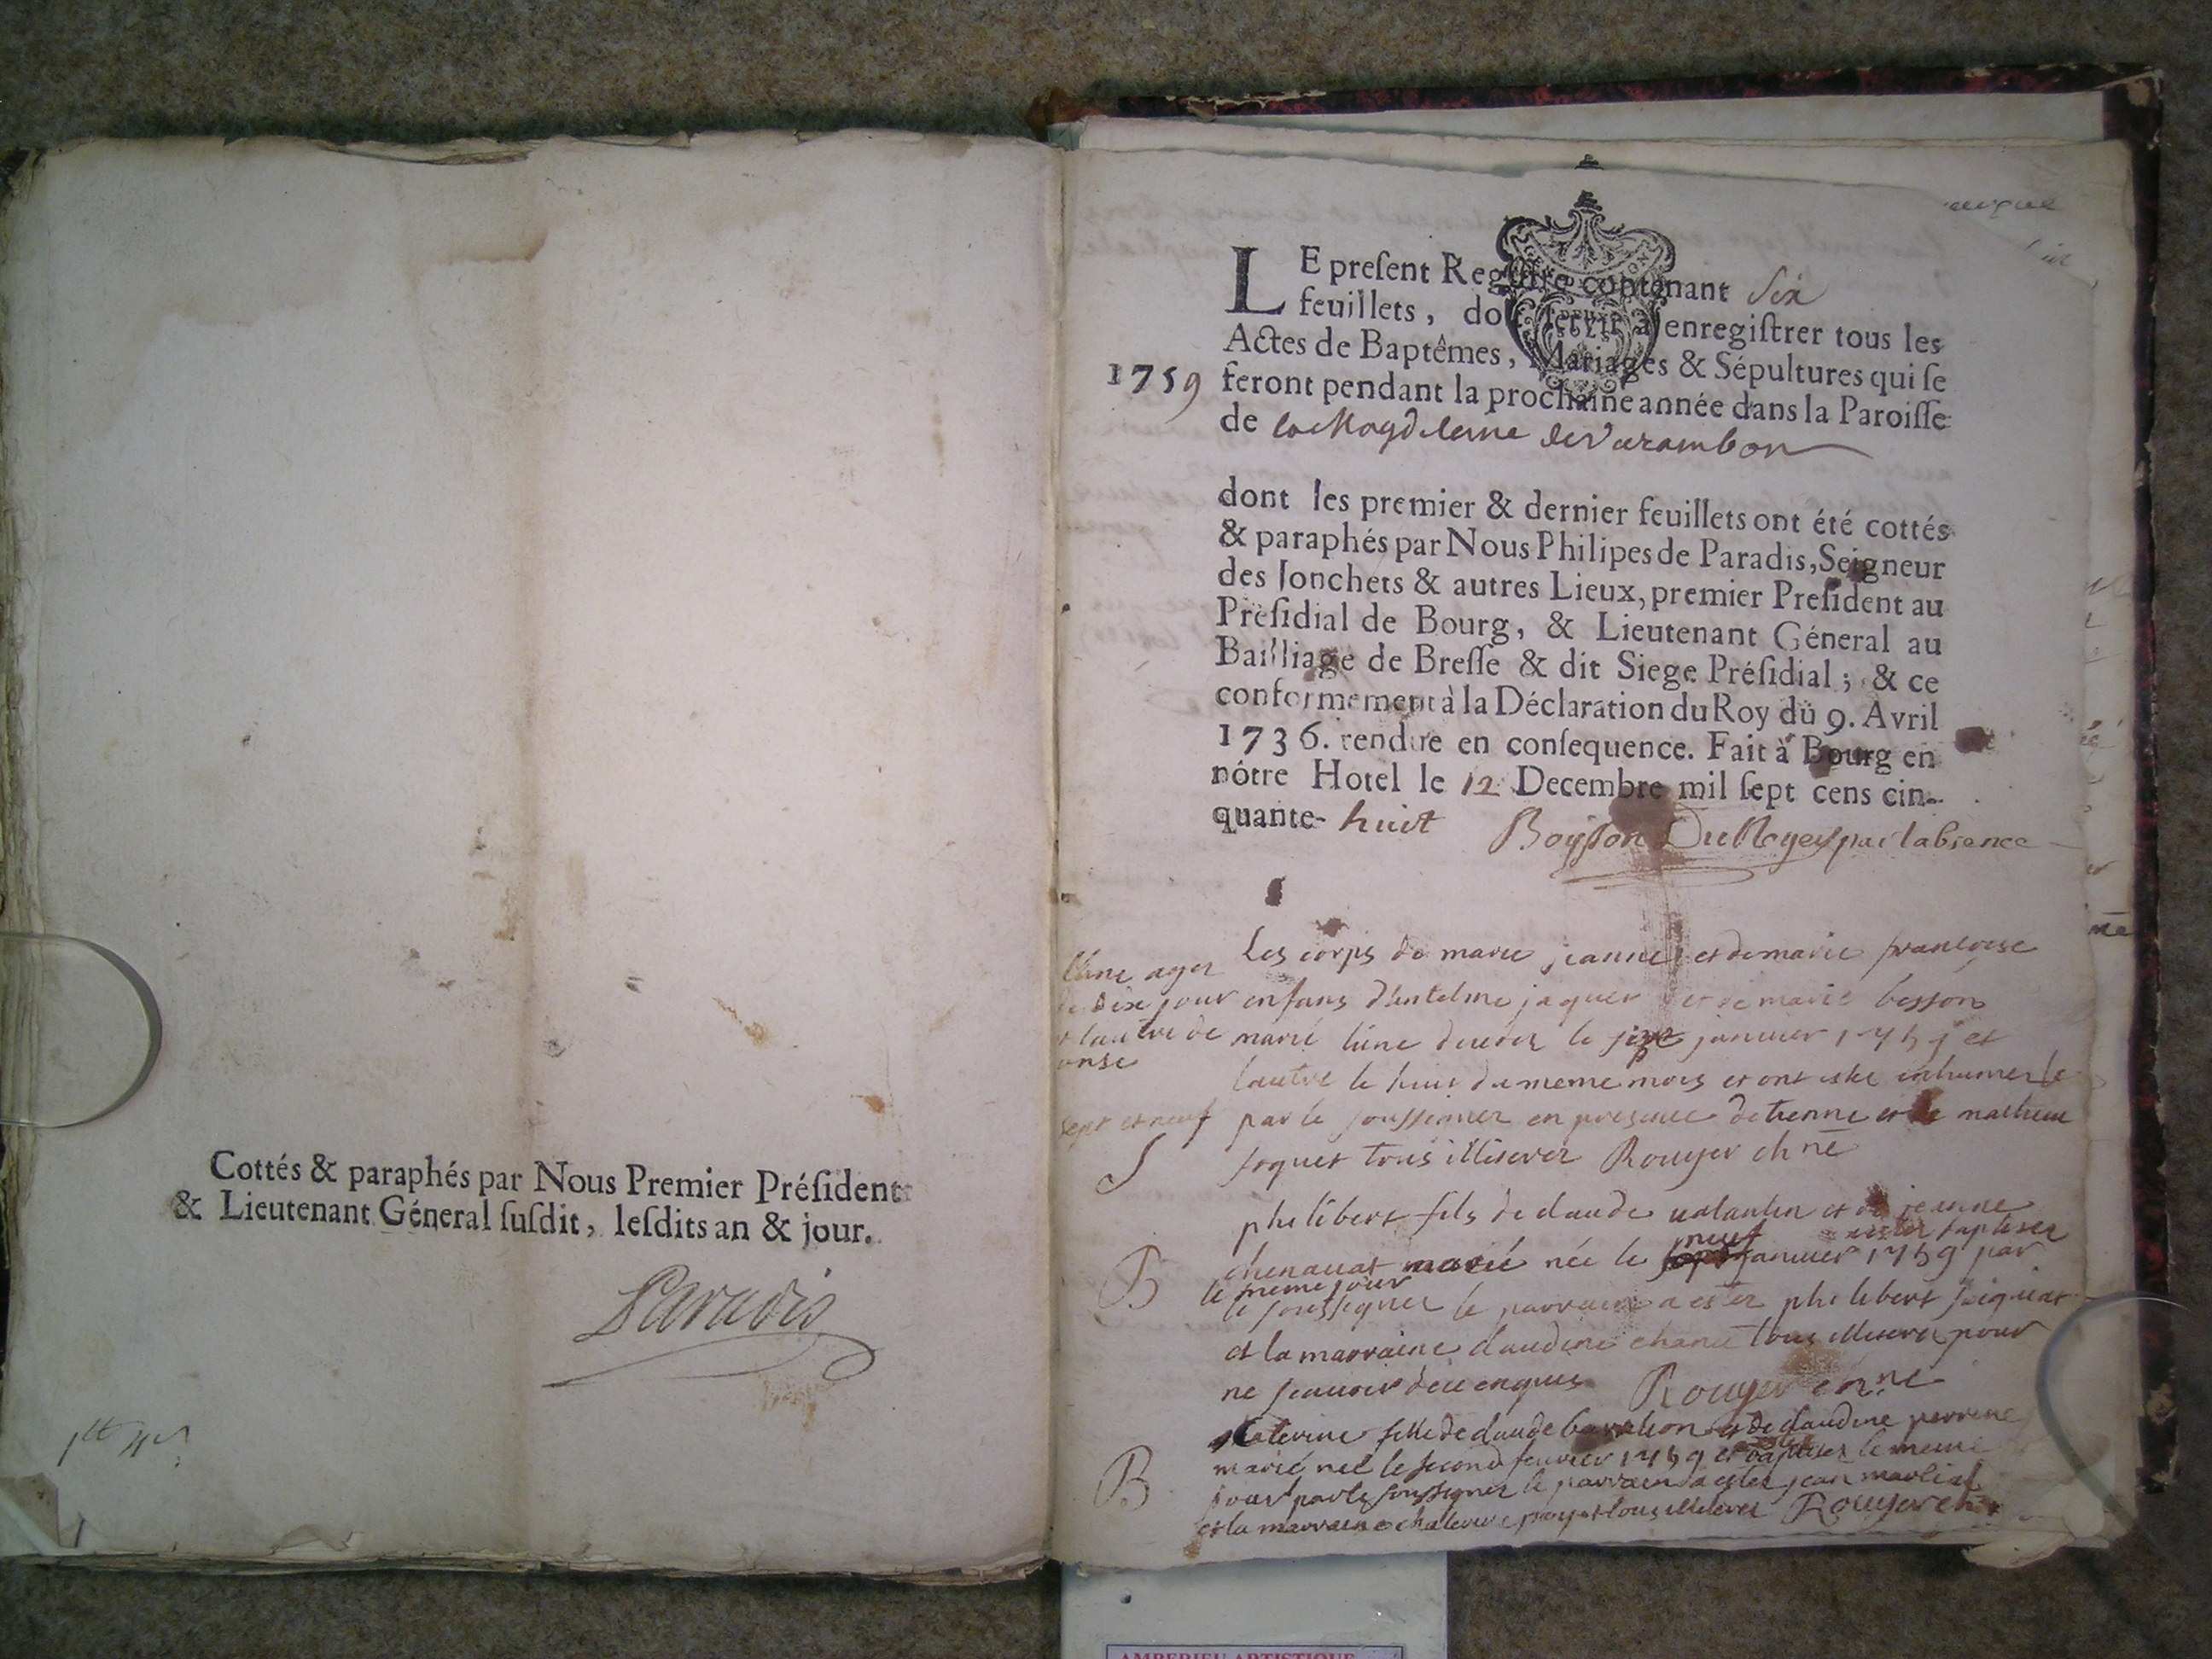 Cottés & paraphés par Nous Premier Préſident
& Lieutenant Géneral ſuſdit, leſdits an & jour.
Paradis
LE preſent Regiſtre contenant Six
feuillets, doit ſervir à enregiſtrer tous les
Actes de Baptêmes, Mariages & Sépultures qui ſe
1759 feront pendant la prochaine année dans la Paroiſſe
de la Magdelerne de Varambon
dont les premier & dernier feuillets ont été cottés
& paraphés par Nous Philipes de Paradis, Seigneur
des Jonchets & autres Lieux, premier Preſident au
Préſidial de Bourg, & Lieutenant Géneral au
Bailliage de Breſſe & dit Siege Préſidial; & ce
conformement à la Déclaration du Roy du 9. Avril
1736. rendue en conſequence. Fait à Bourg en
nôtre Hotel le 12 Decembre mil ſept cens cin-
quante- huit par labsence
Les corps de marie jeanne et de marie francoise
l'une ager
de dix jour enfans d'antelme jaquer et de marie besson
et lautre de marié l'une le janvier
onse
lautre le huit du meme mois et ont este inhumer le
sept et neuf par le soussigner en presence detienne et de mathieu
S joquet tous illiserer Rouyer ch ne
philibert fils de claude valantin et de jeanne
neuf ester baptiser
marié née le janvier 1759 par
B le meme jour
le soussigner le parrain a ester philibert
et la marraine claudine tous illiserer pour
ne scauoir de ce enquis Rouyer ch ne
Caterine fille de claude et de claudine perrine
marié nee le second feurier 1759 et baptiser le meme
B jour par le soussigner le parrain a ester jean marlial
et la marraine tous illiserer Rouyer ch
AMBERIEU ARTISTIQUE